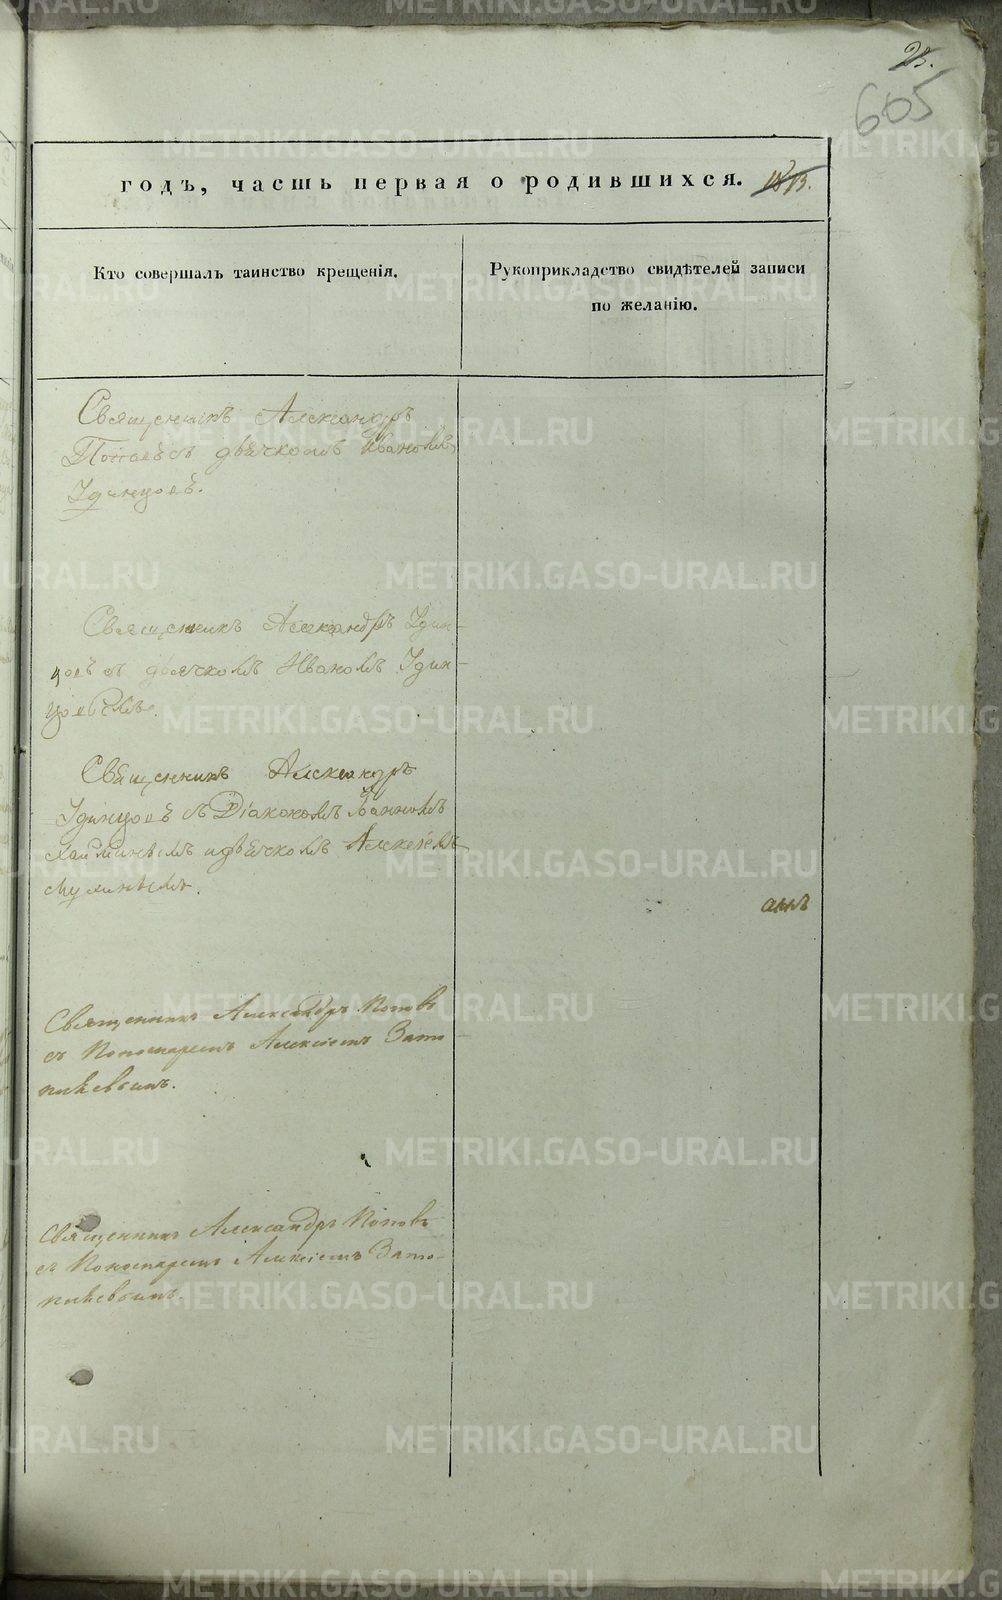 23.
605
годъ, часть первая о родившихся. 1813.
Кто совершалъ таинство крещенія.
Рукоприкладство свидѣтелей записи
по желанію.
Священникъ Александръ
Поповъ съ дьячкомъ Иваномъ
Удинцовъ.
Священникъ Александръ Удин-
цовъ съ дьячкомъ Иваномъ Удин-
цовымъ.
Священникъ Александръ
Удинцовъ съ Діакономъ Іоанномъ
и дьячкомъ Алексіемъ
аннъ
Священникъ Александръ Поповъ
съ Пономаремъ Алексіемъ Запо
Священникъ Александръ Поповъ
съ Пономаремъ Алексіемъ Запо-
METRIKI.GASO-URAL.RU